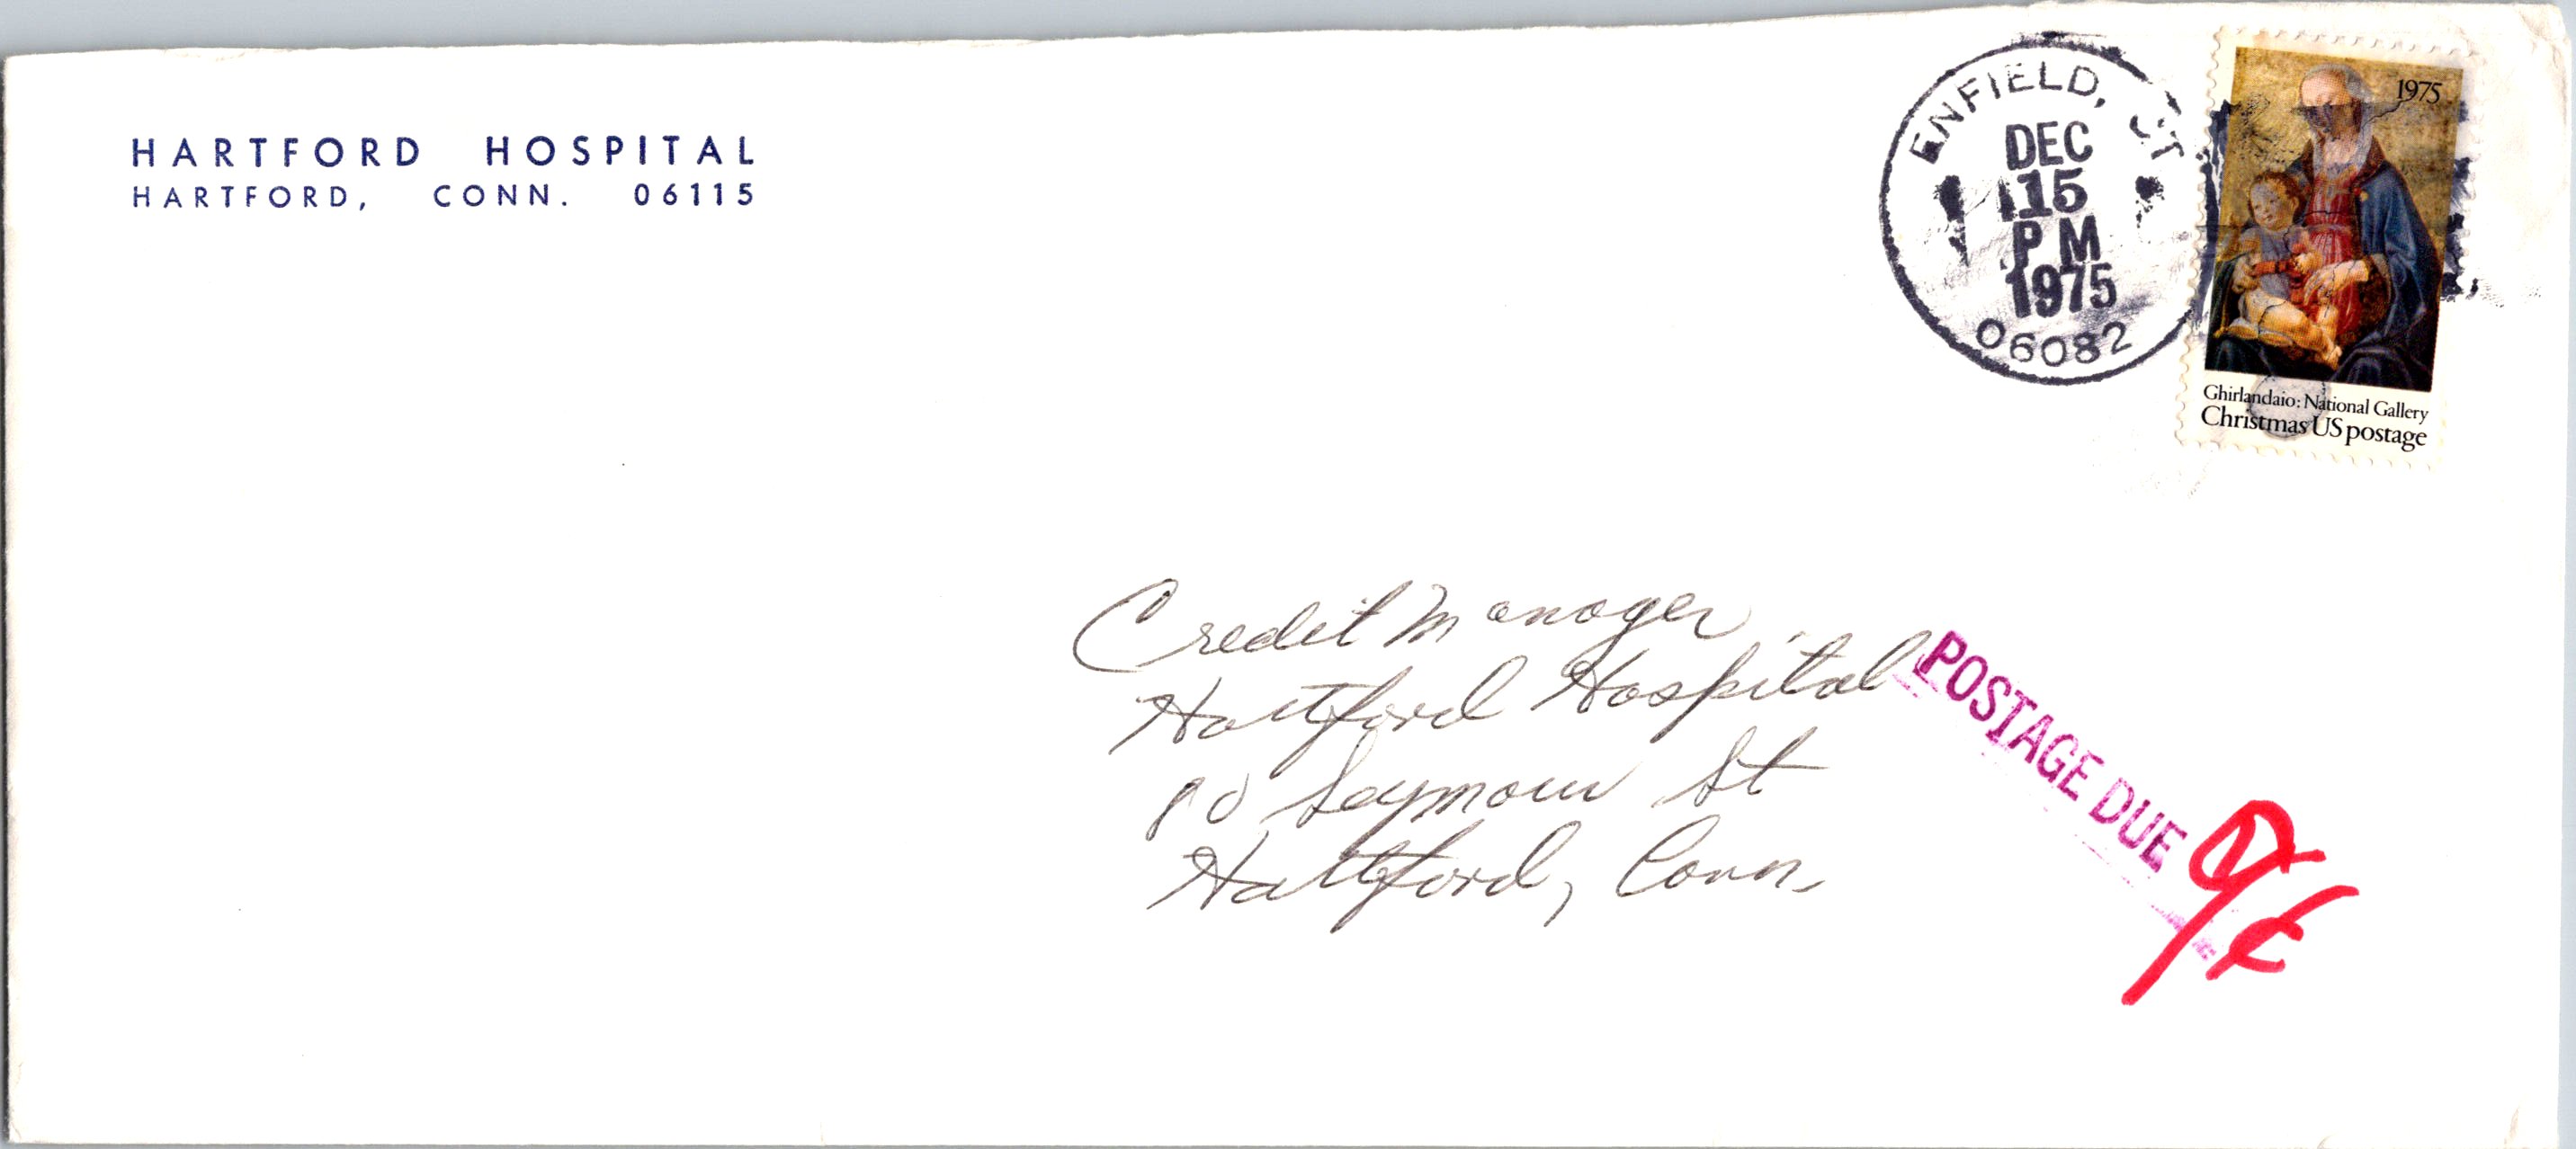 HARTFORD HOSPITAL
HARTFORD, CONN. 06115
ENFIELD, CT
DEC
15
PM
1975
06082
1975
Ghirlandaio: National Gallery
Christmas US postage
Credit Manager
Hartford Hospital
80 Seymour St
Hartford, Conn.
POSTAGE DUE
9¢